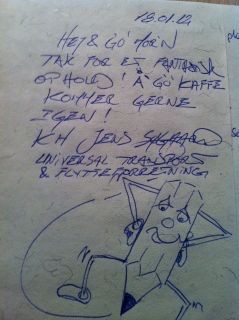 18.01.12
HEJ & GO' MOR'N
TAK FOR ET FANTASTISK
OPHOLD! Å GO' KAFFE
KOMMER GERNE
IGEN!
KH JENS
UNIVERSAL TRANSPORT
& FLYTTEFORRETNING